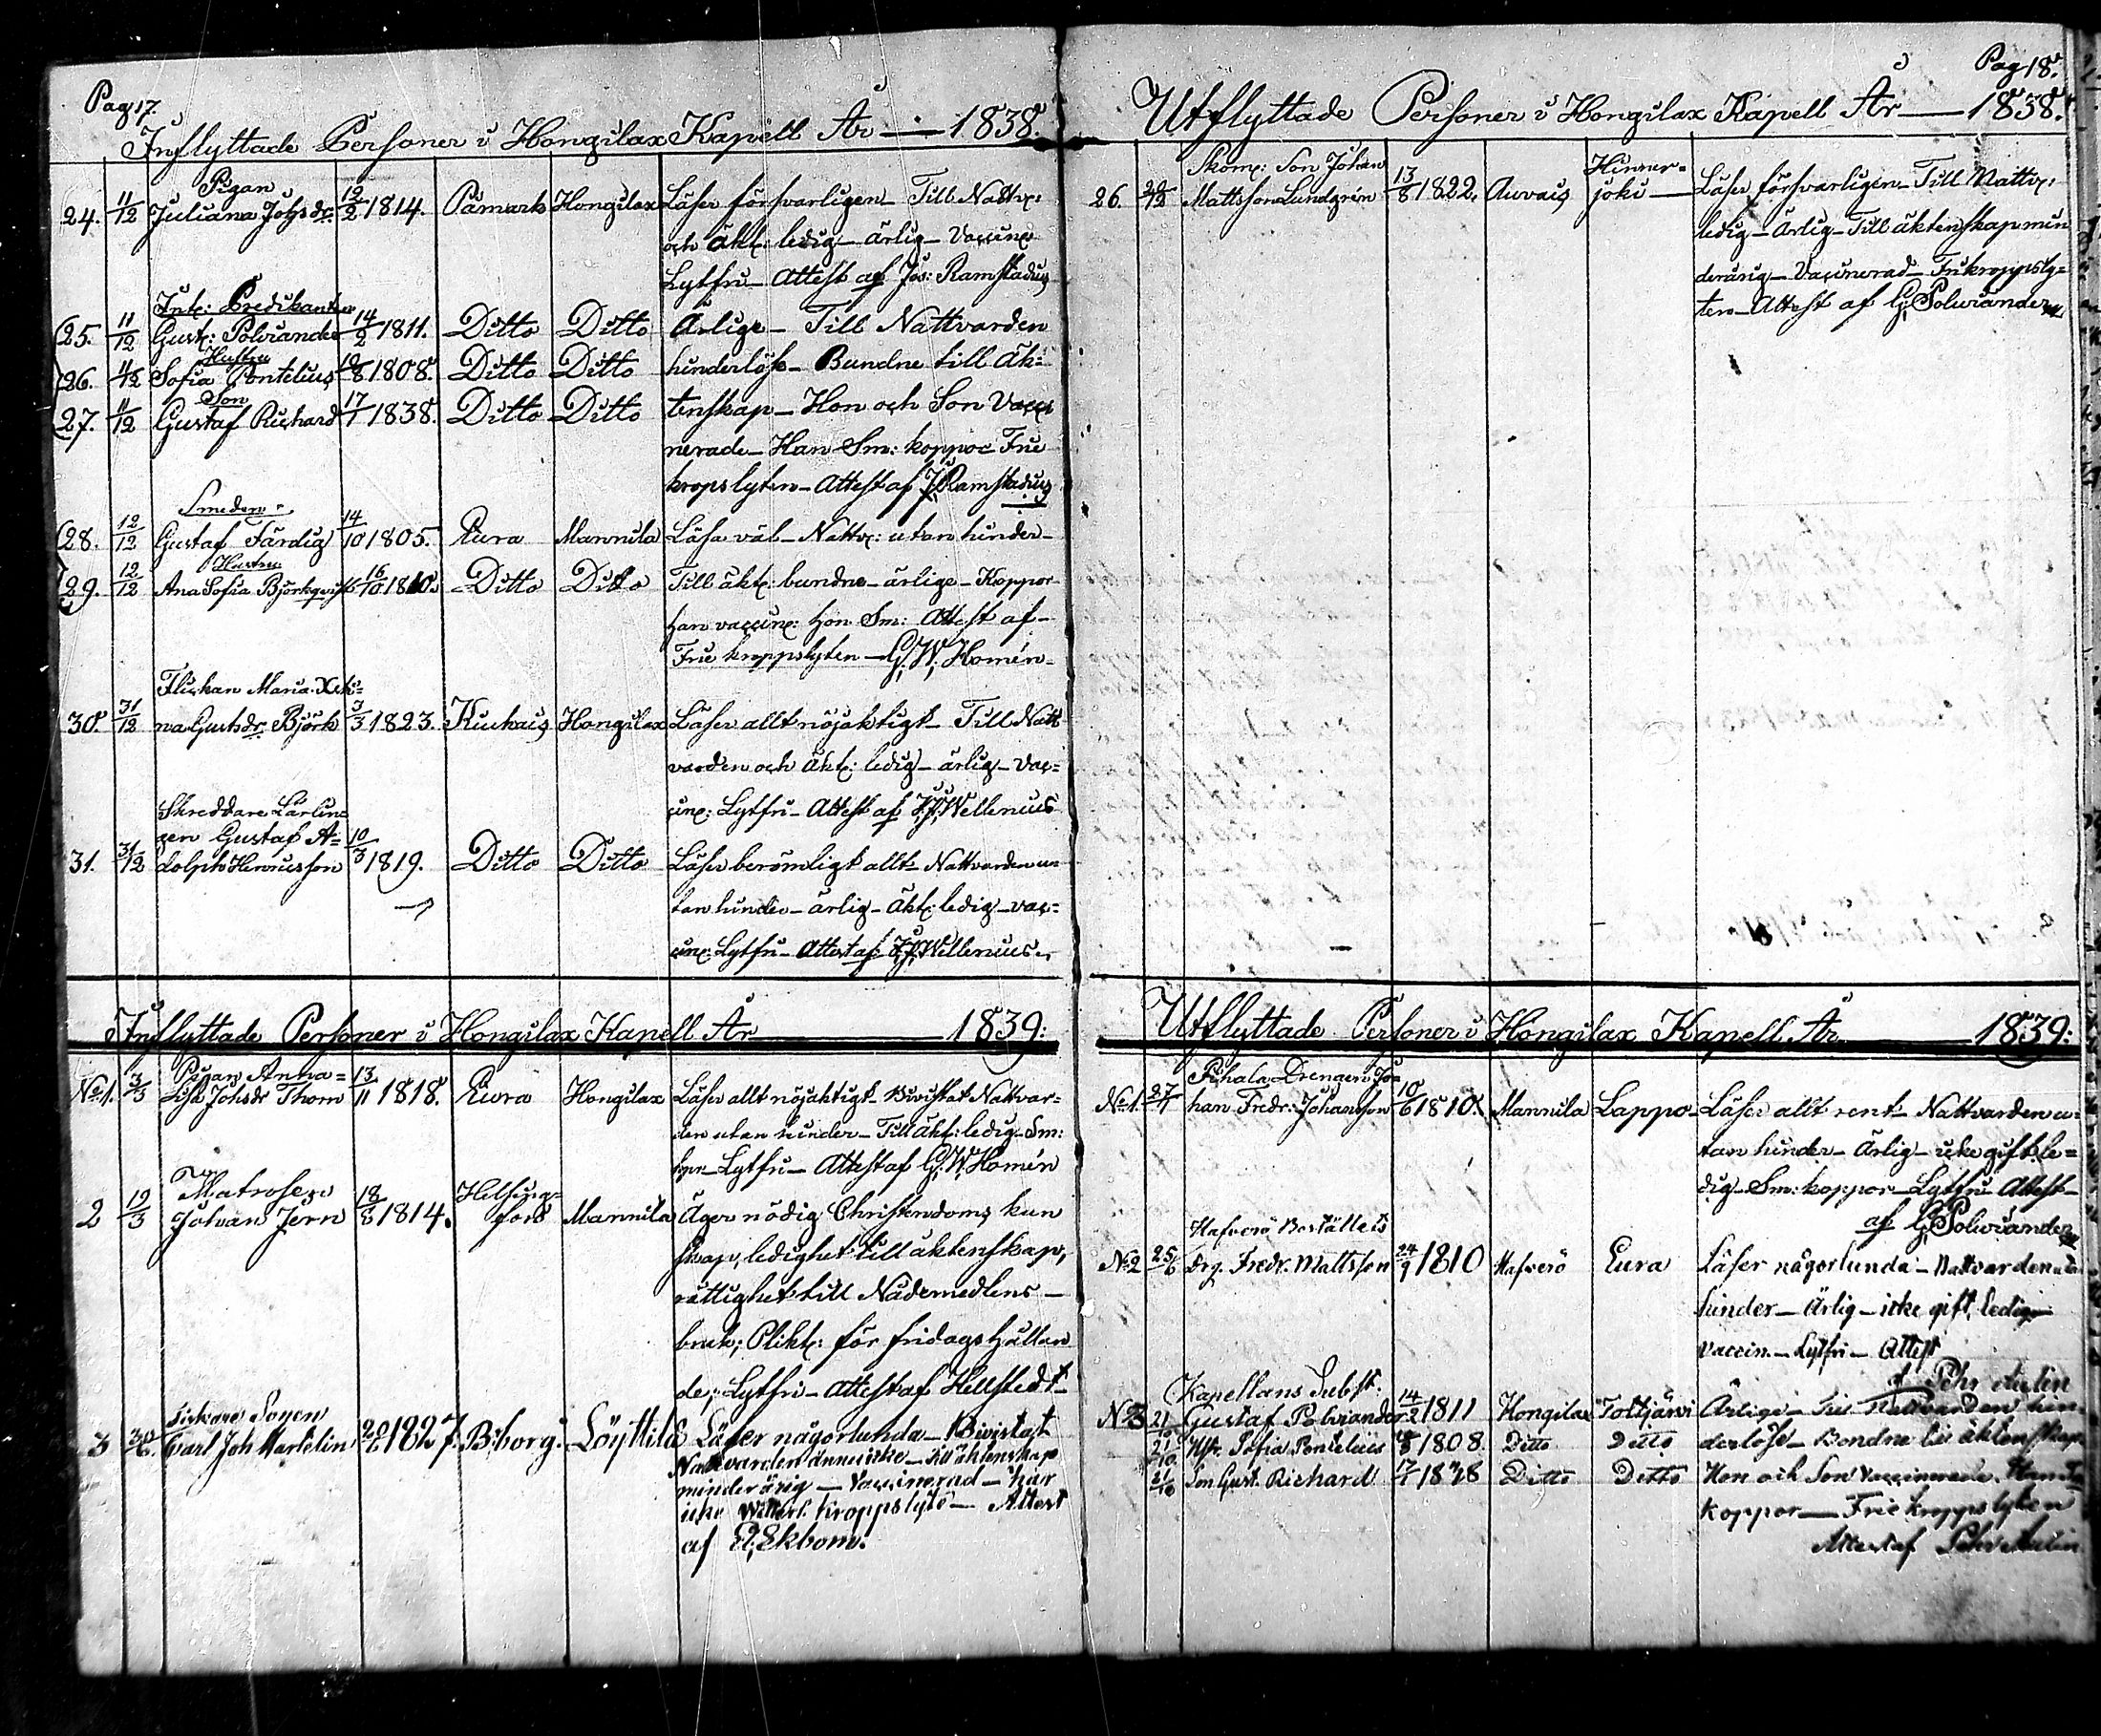 Pag 17.
Inflyttade Personer i Hongilax Kapell År — 1838.
Pigan
24. 11/12 Juliana Johsdr. 12/2 1814. Påmark Hongilax Läser försvarligen — Till Nattv:
och Äkt: ledig — ärlig — Vaccin:
Lytfri — Attest af Jos: Ramstadius
Int: Predikanten
25. 11/12 Gust: Polviander 14/2 1811. Ditto Ditto Ärlige — Till Nattvarden
Hustru
26. 11/12 Sofia Pontelius 1808. Ditto Ditto hinderlöse — Bundne till äk=
Son
27. 11/12 Gustaf Richard 17/1 1838. Ditto Ditto tenskap — Hon och Son Vacci
nerade — Han Sm: koppor Frie
kropslyten — Attest af J. Ramstadius
Smeden
28. 12/12 Gustaf Färdig 14/10 1805. Eura Mannila Läsa väl — Nattv: utan hinder —
Hustru
29. 12/12 Ana Sofia Björkqvist 16/10 1810. Ditto Ditto Till äkt: bundne — ärlige — Koppor
han vaccin: hon Sm: Attest af —
Frie kroppslyten — G. W. Homén —
Flickan Maria
30. 31/12 na Gustsdr. Björk 3/3 1823. Kiukais Hongilax Läser allt nöjaktigt — Till Natt
varden och äkt: ledig — ärlig — Vac=
cin: Lytfri — Attest af Wellenius
Skreddare Lärlin=
gen Gustaf A=
31. 31/12 dolph Henricsson 10/3 1819. Ditto Ditto Läser berömligt allt — Nattvarden u=
tan hinder — ärlig — äkt: ledig — vac=
cin: Lytfri — Attest af Wellenius
Inflyttade Personer i Hongilax Kapell År — 1839:
Pigan Anna=
No 1. 3/3 Lisa Johsdr Thorn 13/11 1818. Eura Hongilax Läser allt nöjaktigt — Bivistat Nattvar=
den utan hinder — Till äkt: ledig — Sm:
kopr — Lytfri — Attest af G. W. Homén
Matrosen
2 19/3 Johan Jern 18/8 1814. Helsing=
fors Mannila Äger nödig Christendoms kun
skap, ledighet till äktenskap,
rättighet till Nådemedlens —
bruk; Plikt: för fridags hållan
de; Lytfri — Attest af Hellstedt
Sonen
3 Carl Joh Martelin 1827. Biborg. Löyttilä Läser någorlunda — Bivistat
Nattvarden ännu icke — till äktenskap
minderårig — Vaccinerad — har
icke kroppslyte — Attest
af Ekbom.
Pag 18.
Utflyttade Personer i Hongilax Kapell År — 1838.
Skom: Son Johan
26. Mattsson Lundgrén 13/8 1822. Auvais Hinner=
joki — Läser försvarligen — Till Nattv:
ledig — Ärlig — Till äktenskap min
derårig — Vaccinerad — Fri kroppsly=
ten — Attest af G. Polviander
Utflyttade Personer i Hongilax Kapell År — 1839:
Pihala Drengen Jo=
No 1. 27/1 han Fredr: Johansson 10/6 1810. Mannila Lappo — Läser allt rent — Nattvarden u=
tan hinder — Ärlig — icke gift, le=
dig — Sm: koppor — Lytfri — Attest —
af G. Polviander
Hafverö Boställets
No 2 25/6 drg. Fredr. Mattsson 24/9 1810 Hafverö Eura Läser någorlunda — Nattvarden utan
hinder — Ärlig — icke gift, ledig —
Vaccin. — Lytfri — Attest
af Pehr Aulin
Kapellans Subst:
No 3 21/10 Gustaf Polviander 14/2 1811 Hongilax Toltjärvi Ärlige — Till Nattvarden hin
21/10 Hstr. Sofia Pontelius 1808. Ditto Ditto derlöse — Bundne till äktenskap
21/10 Son Gust. Richard 17/1 1838 Ditto Ditto Hon och Son Vaccinerade. Han
Koppor — Frie kroppslyten
Attest af Pehr Aulin